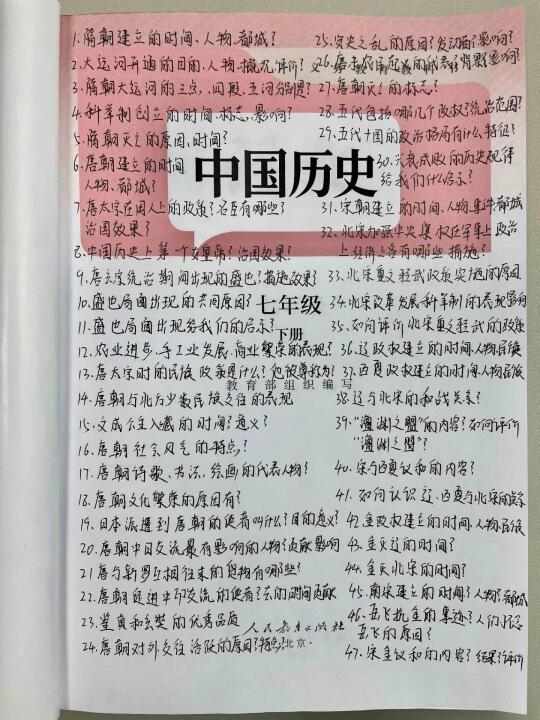 1.隋朝建立的时间、人物、都城?
2.大运河开通的目的、人物、概况、评价?
3.隋朝大运河的三点、四段、五河分别是?
4.科举制创立的时间、标志、影响?
5.隋朝灭亡的原因、时间?
6.唐朝建立的时间
人物、都城?
7.唐太宗在用人上的政策?名臣有哪些?
治国效果?
8.中国历史上第一个女皇帝?治国效果?
9.唐玄宗统治期间出现的盛世?措施效果?
10.盛世局面出现的共同原因?
11.盛世局面出现给我们的启示?
12.农业进步、手工业发展、商业繁荣的表现?
13.唐太宗时的民族政策是什么?他被尊称为?
14.唐朝与北方少数民族交往的表现
15.文成公主入藏的时间?意义?
16.唐朝社会风气的特点?
17.唐朝诗歌、书法、绘画的代表人物?
18.唐朝文化繁荣的原因有?
19.日本派遣到唐朝的使者叫什么?目的意义?
20.唐朝中日交流最有影响的人物?贡献影响
21唐与新罗互相往来的货物有哪些?
22.唐朝促进中印交流的使者?去的时间贡献
23.鉴真和玄奘的优秀品质
24.唐朝对外交往活跃的原因?特点?
中国历史
七年级
下册
教育部组织编写
人民教育出版社
·北京·
25.安史之乱的原因?发动者?影响?
26.唐末农民起义的代表?背景?影响?
27.唐朝灭亡的标志?
28.五代包括哪几个政权?统治范围?
29.五代十国的政治格局有什么特征?
30.兴衰成败的历史规律
给我们什么启示?
31.宋朝建立的时间、人物、事件、都城
32.北宋加强中央集权在军事上政治
上经济上各有哪些措施?
33.北宋重文轻武政策实施的原因
34.北宋改革发展科举制的表现影响
35.如何评价北宋重文轻武的政策
36.辽政权建立的时间、人物、民族
37.西夏政权建立的时间、人物民族
38.辽与北宋的和战关系?
39."澶渊之盟"的内容?如何评价
"澶渊之盟"?
40.宋与西夏议和的内容?
41.如何认识辽、西夏与北宋的关系
42.金政权建立的时间、人物、民族
43.金灭辽的时间?
44.金灭北宋的时间?
45.南宋建立的时间?人物?都城
46.岳飞抗金的事迹?人们怀念
岳飞的原因?
47.宋金议和的内容?结果?评价